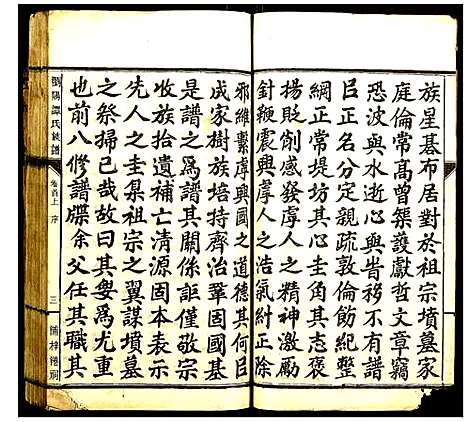 族星基布居對於祖宗墳墓家
庭倫常高曾榘護獻哲文章竊
恐波與水逝心與昔移不有譜
臣正名分定親疏敦倫飭紀整
綱正常堤坊其心圭角其志褒
揚貶斷感發虔人之精神激
針鞭震興虔人之浩氣糾正除
邪維繫虔興國之道德其何臣
成家樹族培特齊治鞏固國基
是譜之為其關係詎僅敬宗
收族拾遺補亡清源固本表示
先人之圭臬祖宗之翼謀墳墓
之祭掃已哉故曰其㝯為尤重
也前八修譜牒余父任其職其
瀏陽譚氏族譜
卷首上 序
三